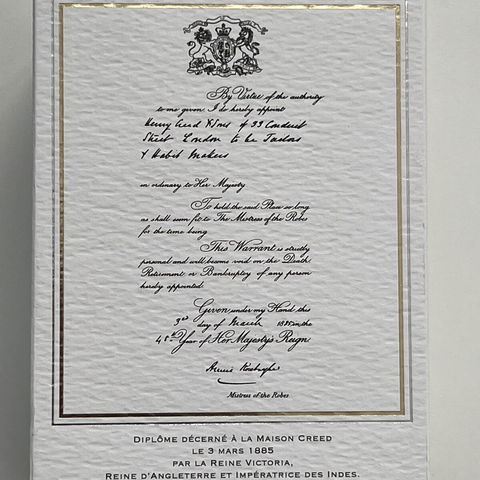 By Virtue of the authority
to me given I do hereby appoint
Henry Creed & Sons of 33 Conduit
Street London to be Tailors
& Habit Makers
in ordinary to Her Majesty
To hold the said Place so long
as shall seem fit to The Mistress of the Robes
for the time being
This Warrant is strictly
personal and will become void on the Death
Retirement or Bankruptcy of any person
hereby appointed.
Given under my Hand this
3rd day of March 1885 in the
48th Year of Her Majesty's Reign
Mistress of the Robes
DIPLÔME DÉCERNÉ À LA MAISON CREED
LE 3 MARS 1885
PAR LA REINE VICTORIA,
REINE D'ANGLETERRE ET IMPÉRATRICE DES INDES.